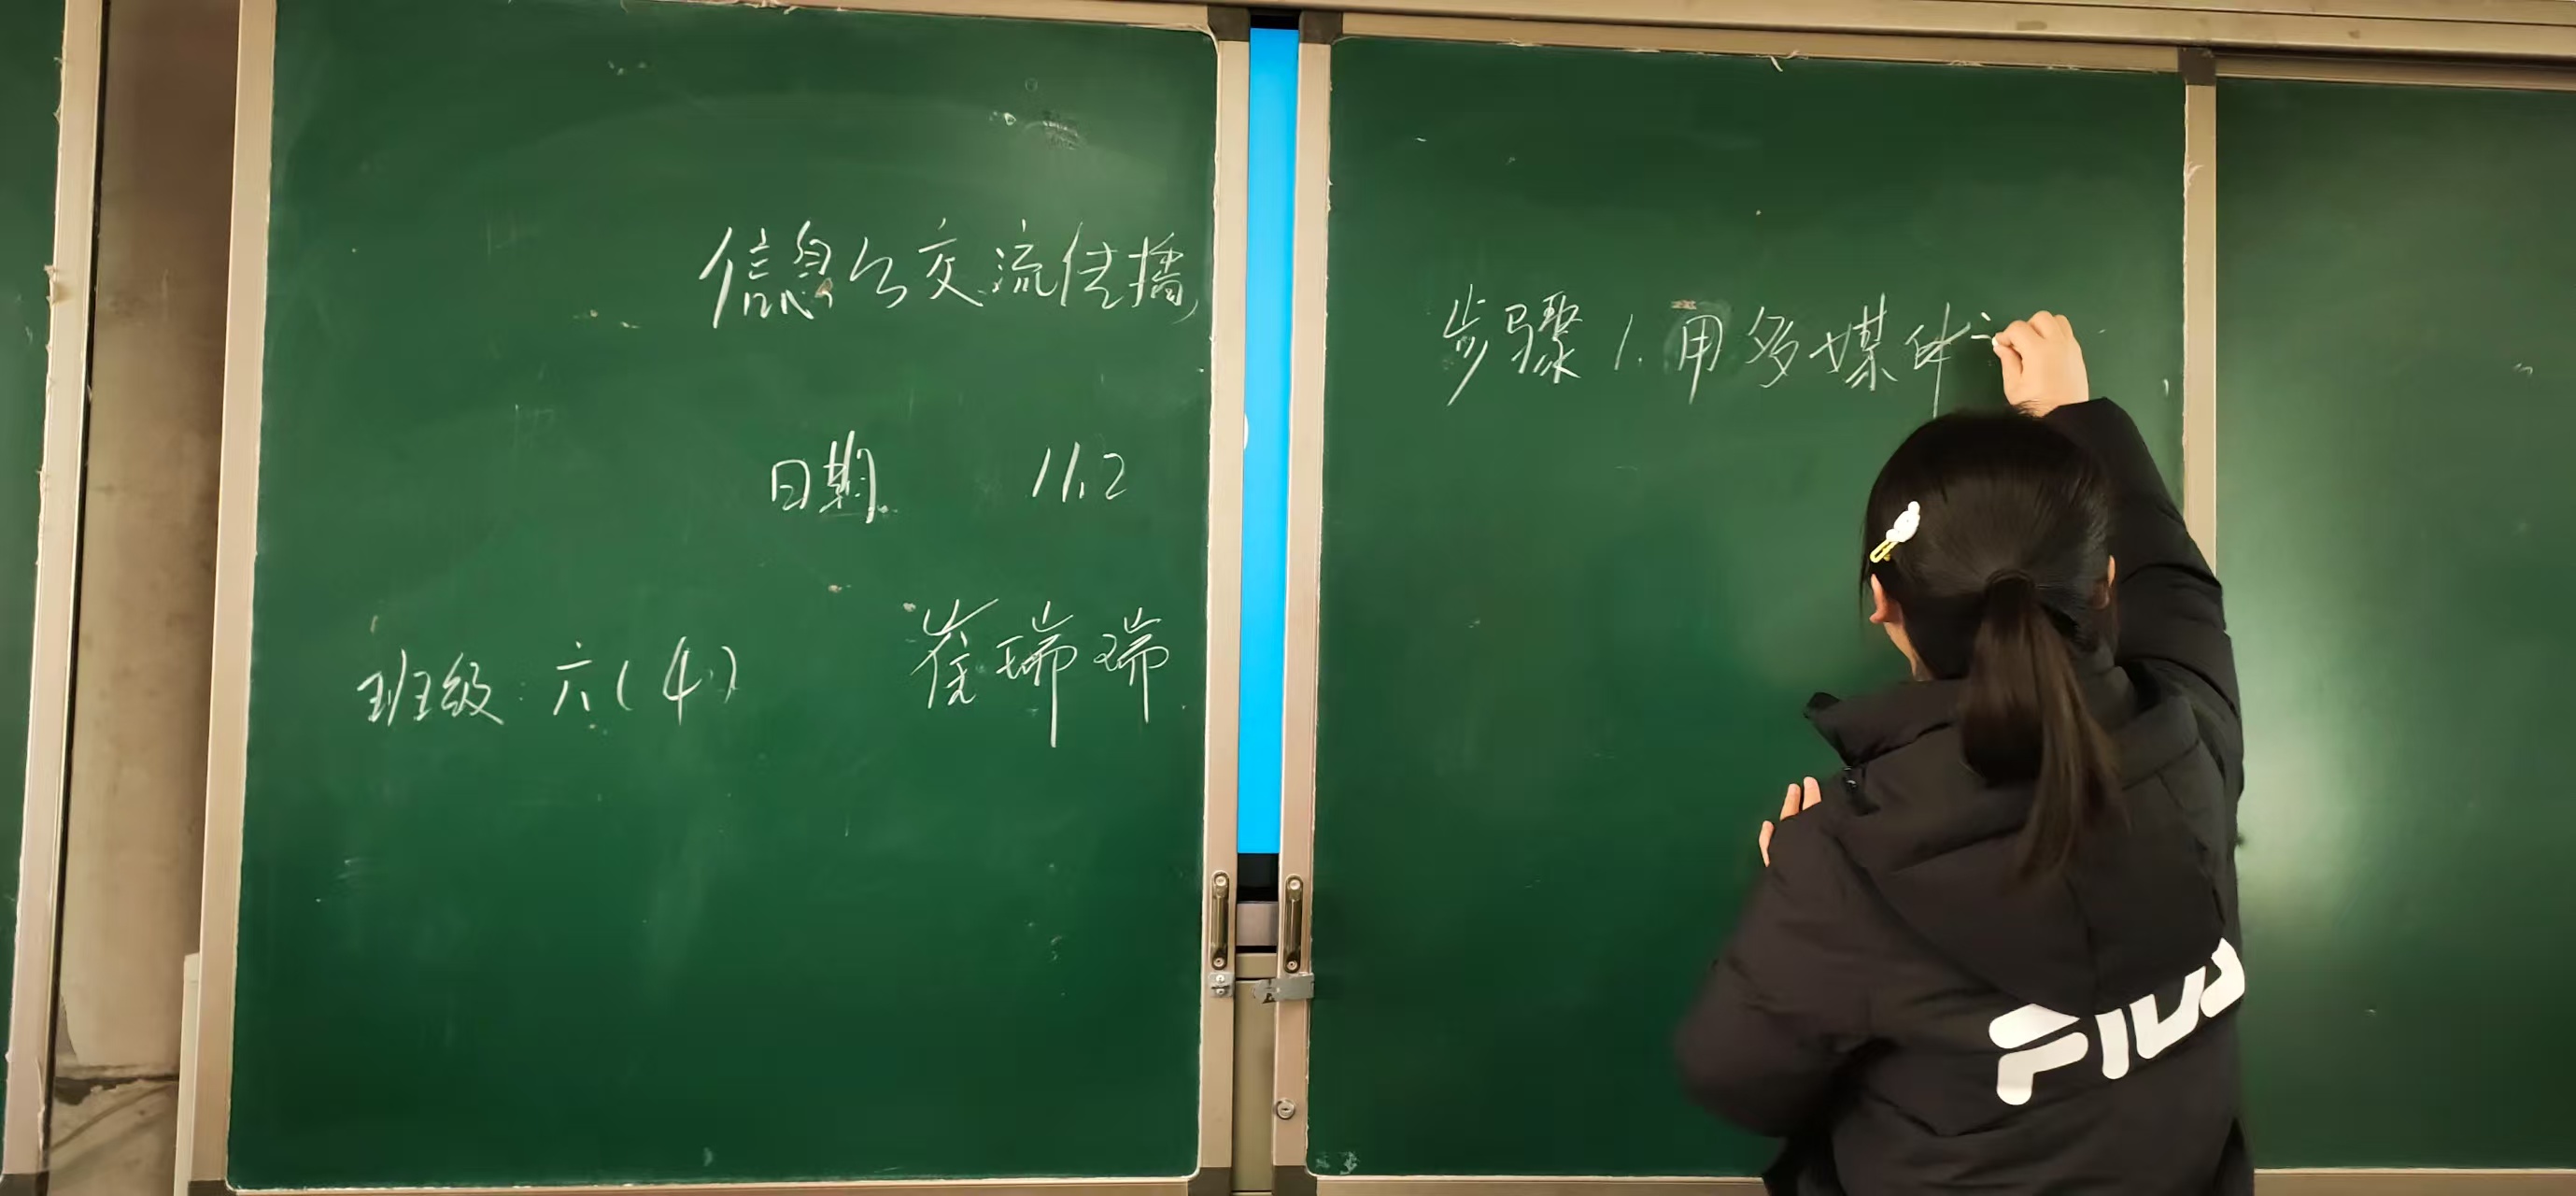 信息公交流传播
日期 11.2
班级:六(4) 崔瑞瑞
步骤1.用多媒体
FILA